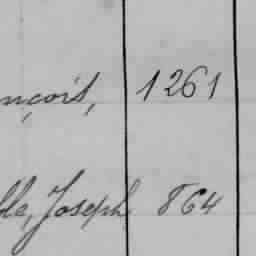 nçois, 1261
lle, Joseph 864